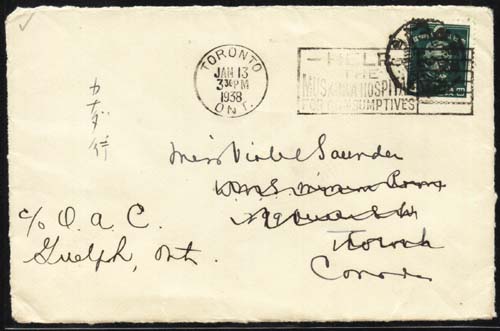 TORONTO
JAN 13
3 30 PM
1938
ONT.
HELP
THE
MUSKOKA HOSPITAL
FOR CONSUMPTIVES
カナダ行
Miss Violet Saunder
Toronto
Canada
c/o O. A. C.
Guelph, Ont.